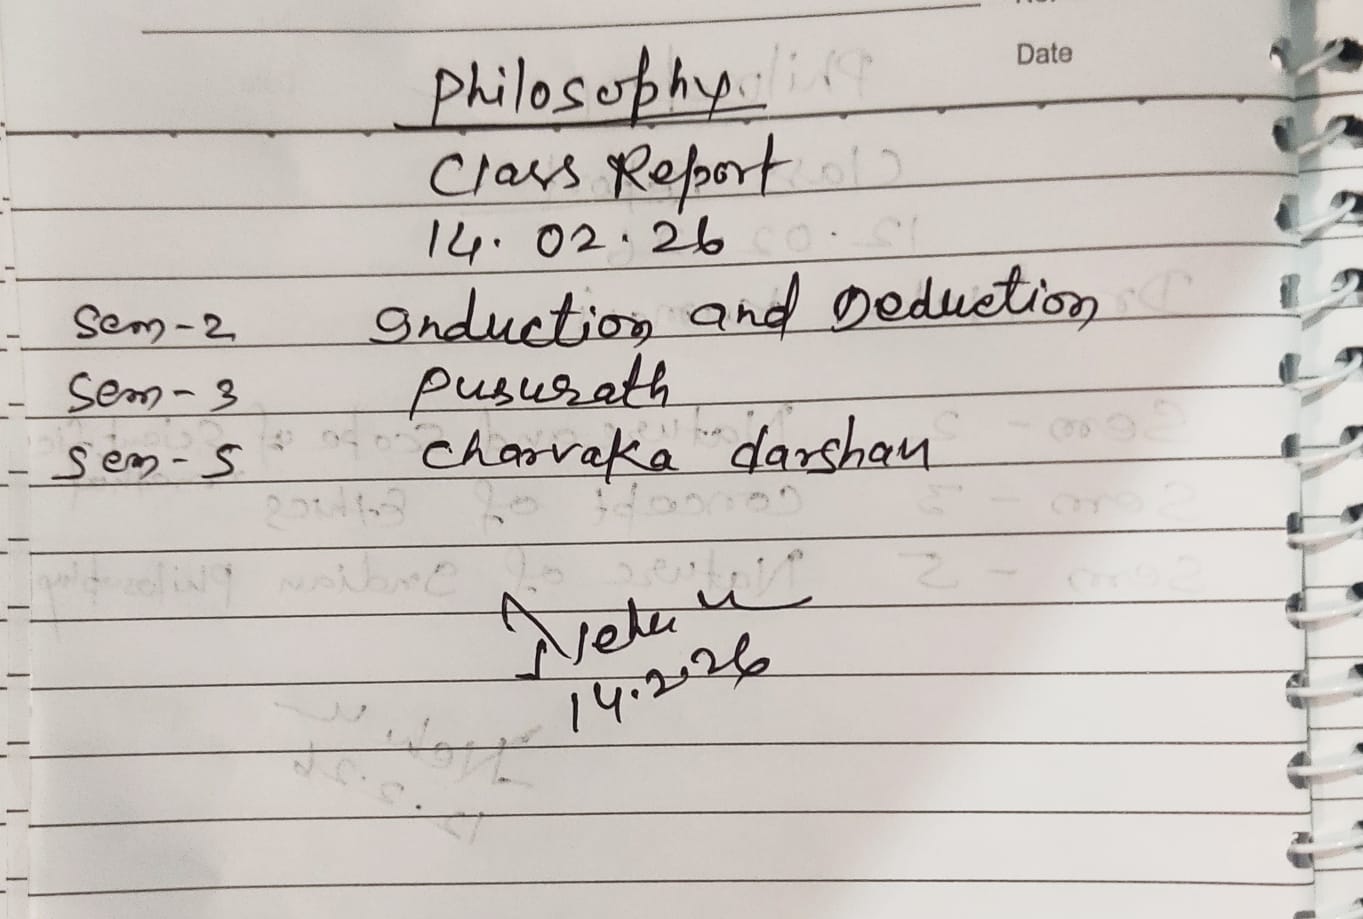 Date
Philosophy
Class Report
14.02.26
Sem-2 Induction and Deduction
Sem-3 Pusurath
Sem-5 Charvaka darshan
14.2.26